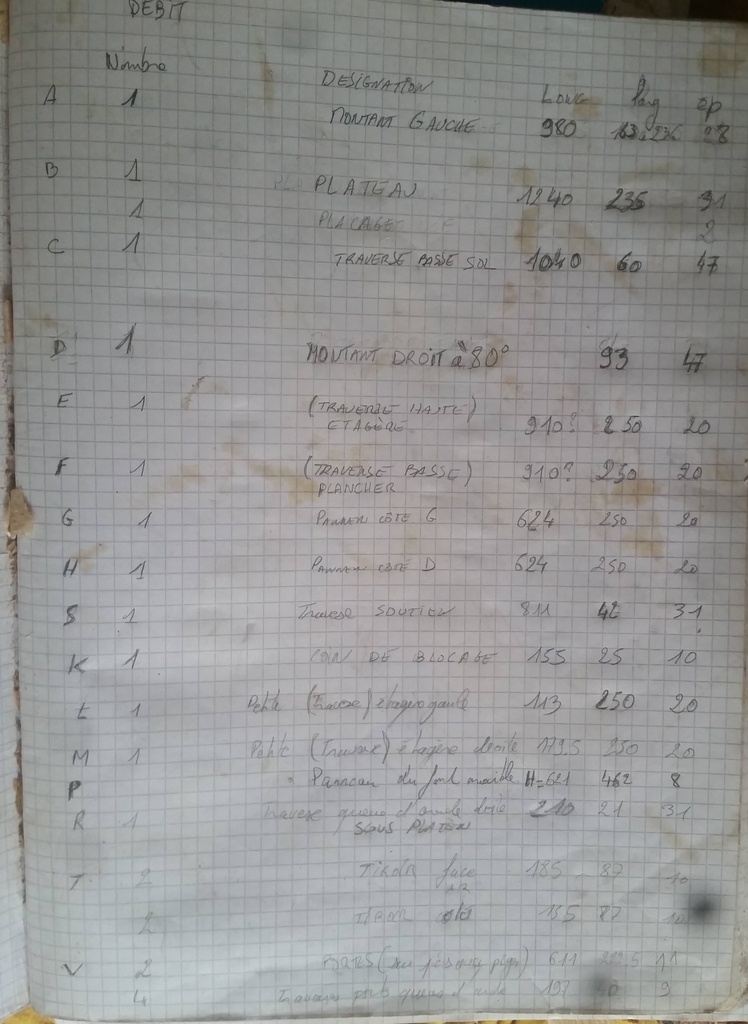 DEBIT
Nombre DESIGNATION LONG larg ep
A 1 MONTANT GAUCHE 980 28
B 1 PLATEAU 1240 235 31
1 PLACAGE 2
C 1 TRAVERSE BASSE SOL 1040 60 47
D 1 MONTANT DROIT à 80° 93 47
E 1 (TRAVERSE HAUTE) 910? 250 20
ETAGÈRE
F 1 (TRAVERSE BASSE) 910? 250 20
PLANCHER
G 1 COTE G 624 250 20
H 1 COTE D 624 250 20
S 1 Traverse SOUTIEN 811 42 31
K 1 COIN DE BLOCAGE 155 25 10
L 1 Petite (Traverse) étagère gauche 113 250 20
M 1 Petite (Traverse) étagère droite 179.5 250 20
P Panneau du fond meuble H=621 462 8
R 1 Traverse queue d'aronde droite 210 21 31
SOUS PLATEAU
T 2 TIROIR face 185 87 10
AR
2 TIROIR côté 87 10
V 2 611 11
4 Traverse queue d'aronde 197 9